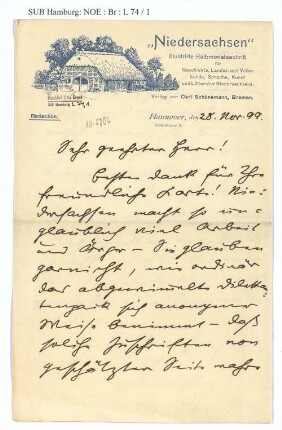 SUB Hamburg: NOE : Br : L 74 / 1
„Niedersachsen"
Illustrirte Halbmonatsschrift
für
Geschichte, Landes- und Volks-
kunde, Sprache, Kunst
und Litteratur Niedersachsens.
Verlag von Carl Schünemann, Bremen.
Redaction.
Hannover, den 28. Nov. 99.
Sehr geehrter Herr!
Besten Dank für Ihre
freundliche Karte! Nie-
dersachsen macht so un-
glaublich viel Arbeit
und Ärger – Sie glauben
garnicht, wie ordinär
das abgewinkelte Dilettan-
tenpack sich anonymer
Weise benimmt – daß
solche Zuschriften von
geschätzter Seite wahre